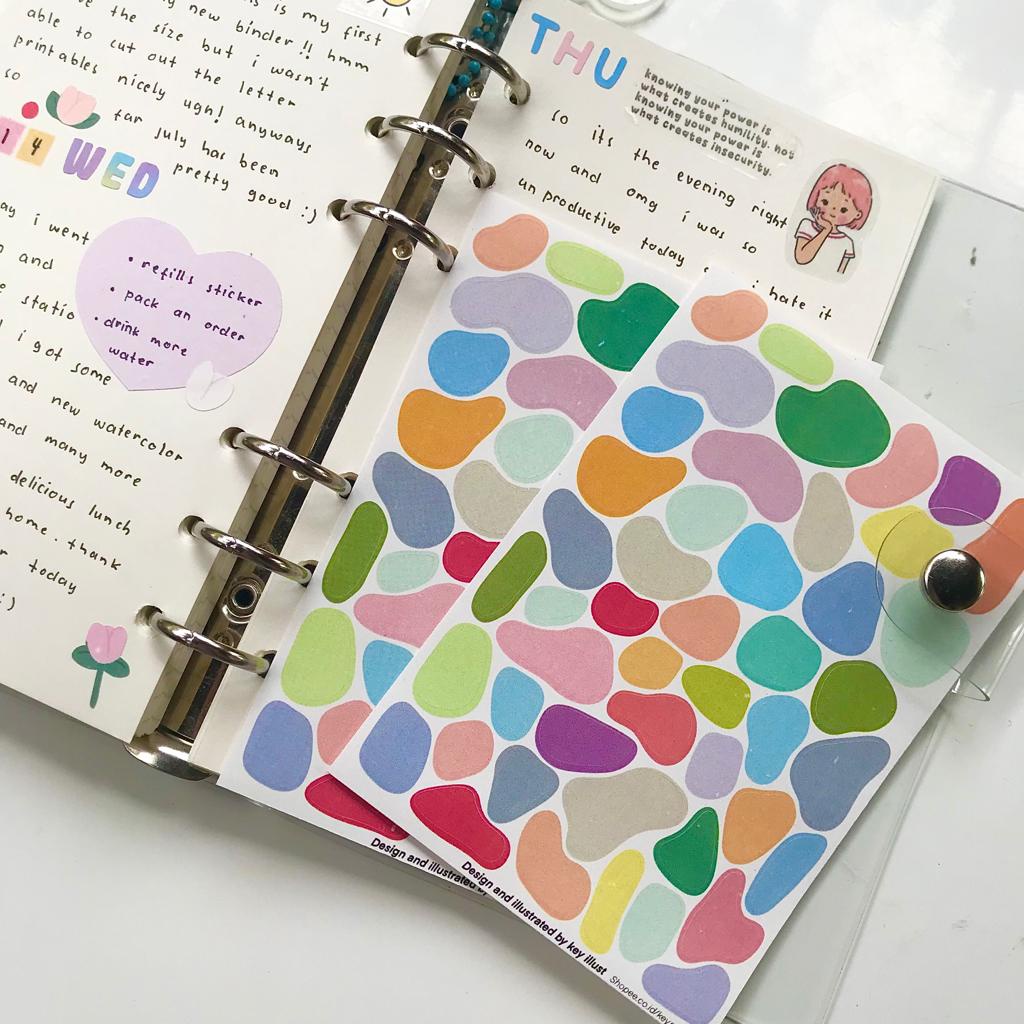 is my first
new binder!! hmm
the size but i wasn't
able to cut out the letter
printables nicely ugh! anyways
so far july has been
pretty good :)
14 WED
i went
and
i got some
and new watercolor
and many more
delicious lunch
home. thank
today
:)
• refills sticker
• pack an order
• drink more
water
THU
knowing your power is
what creates humility. not
knowing your power is
what creates insecurity.
so its the evening right
now and omg i was so
un productive today
i hate it
Design and illustrated by
Design and illustrated by key illust
Shopee.co.id/key